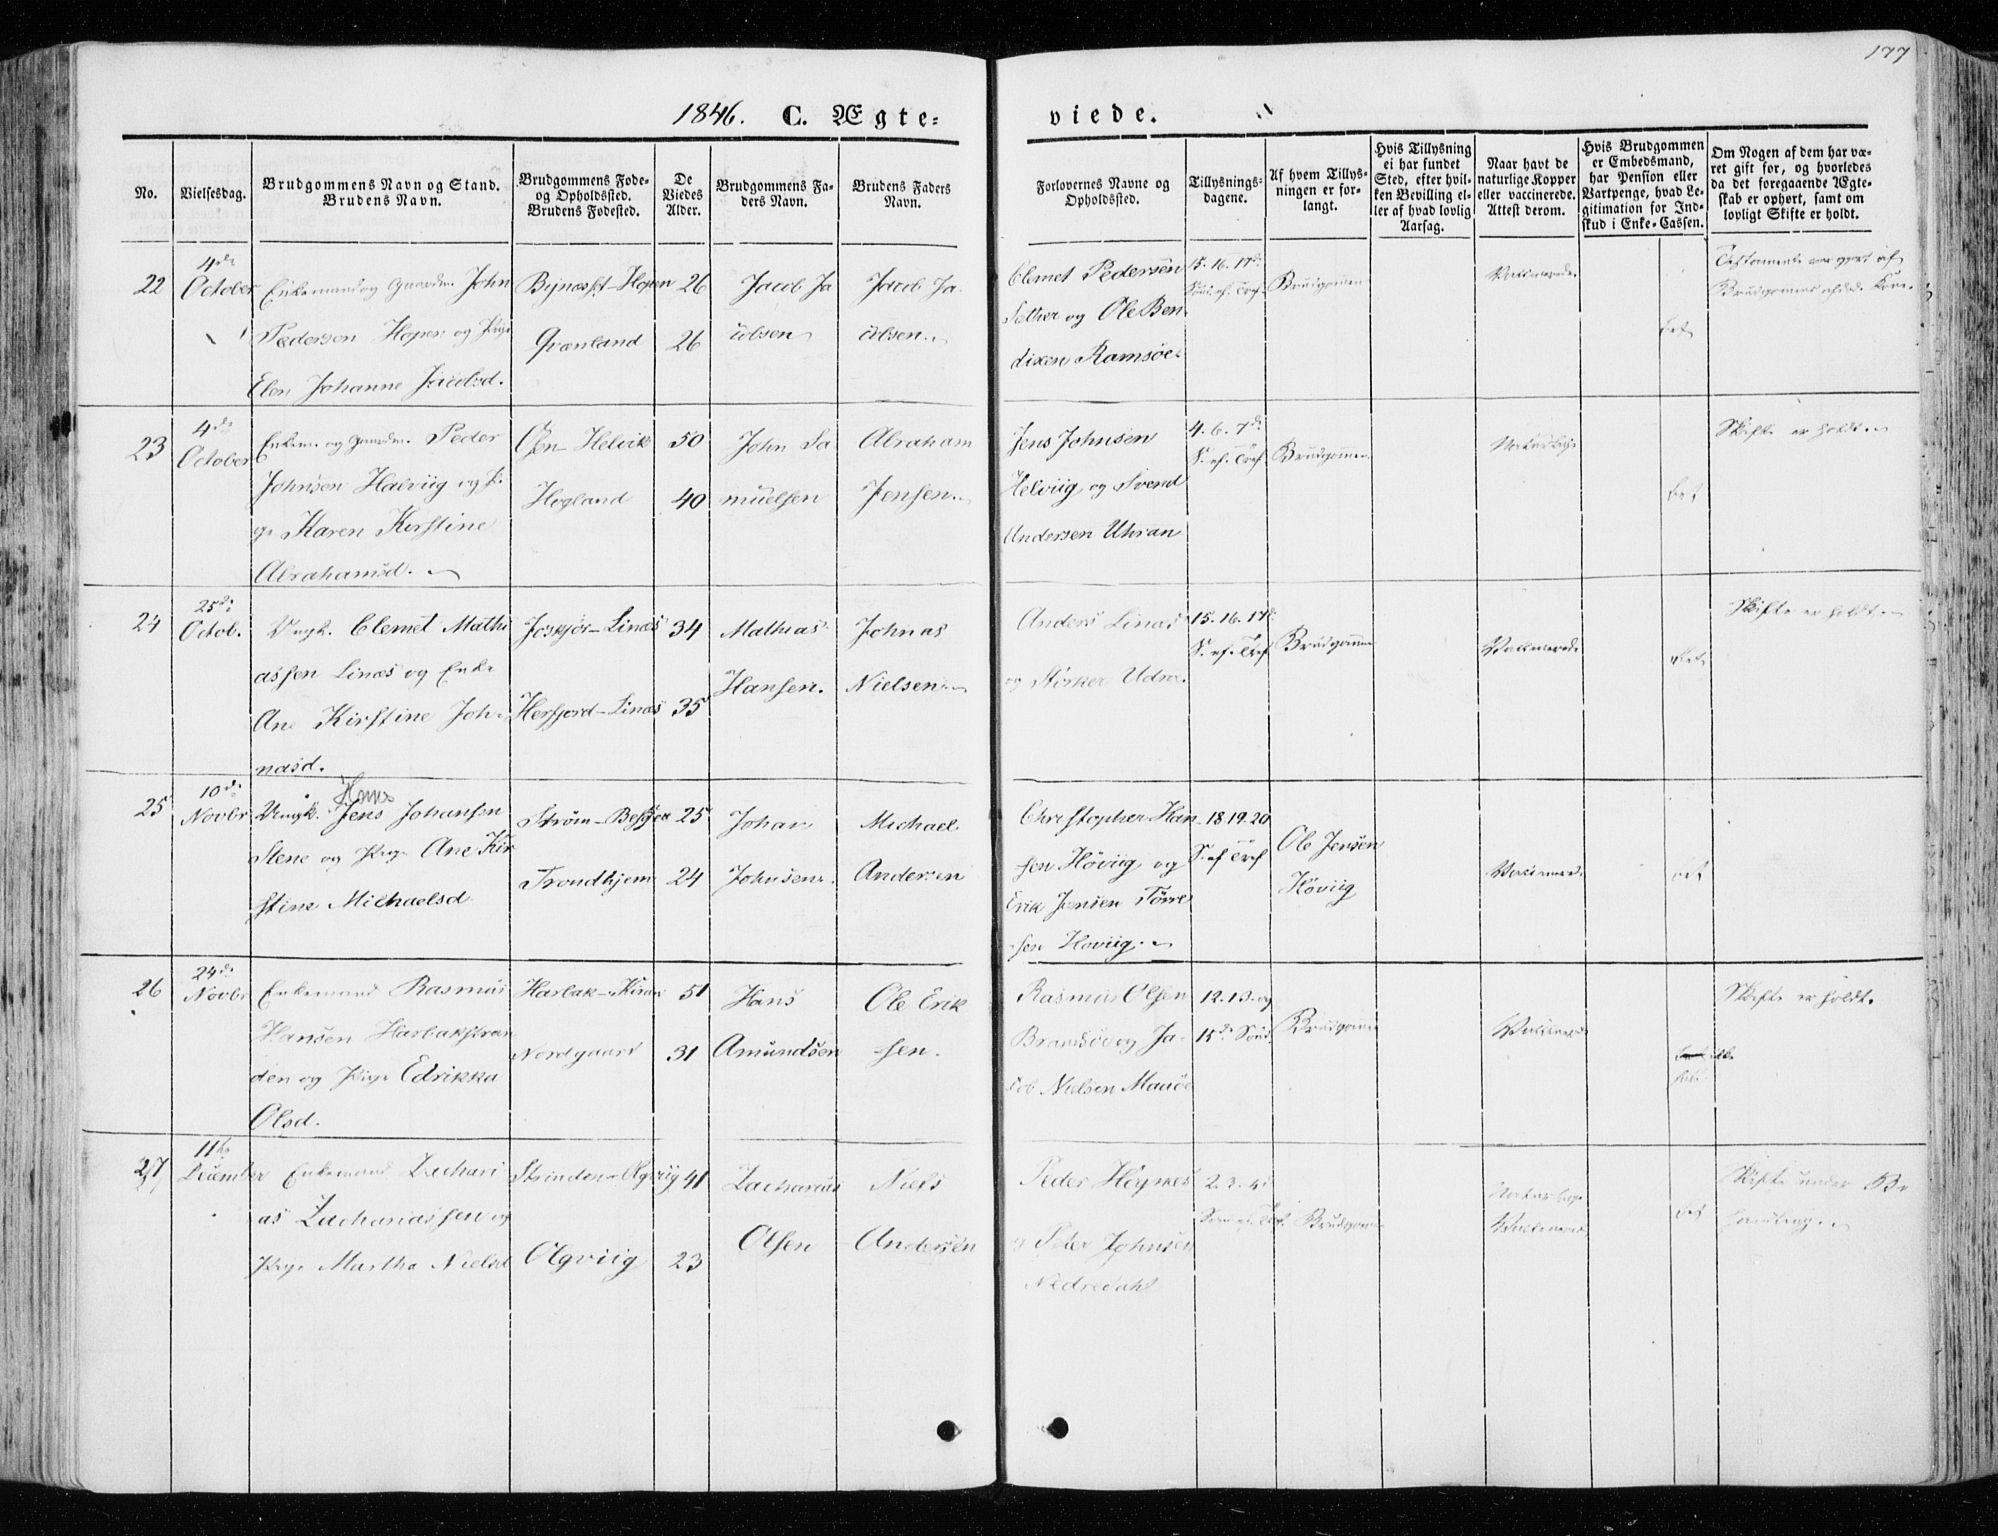 177
1846. C. Ægte=
viede.
No.
Vielsesdag.
Brudgommens Navn og Stand.
Brudens Navn.
Brudgommens Føde-
og Opholdssted.
Brudens Fødested.
De
Viedes
Alder.
Brudgommens Fa-
ders Navn.
Brudens Faders
Navn.
Forlovernes Navne og
Opholdssted.
Tillysnings-
dagene.
Af hvem Tillys-
ningen er for-
langt.
Hvis Tillysning
ei har fundet
Sted, efter hvil-
ken Bevilling el-
ler af hvad lovlig
Aarsag.
Naar havt de
naturlige Kopper
eller vaccinerede.
Attest derom.
Hvis Brudgommen
er Embedsmand,
har Pension eller
Vartpenge, hvad Le-
gitimation for Ind-
skud i Enke-Cassen.
Om Nogen af dem har væ-
ret gift for, og hvorledes
da det foregaaende Ægte-
skab er ophørt, samt om
lovligt Skifte er holdt.
22
4de
October
Enkemand og Gaardm. John
Pedersen Hopen og Pige
Elen Johanne Jacobsd.
Hopen
Grønland
26
26
Jacob Ja
cobsen
Jacob Ja-
cobsen.
Clemet Pedersen
Sæther og Ole Ben
dixen Ramsøe.
15. 16. 17de
Brudgommen
Vaccinerede.
23
4de
October
Enkem. og Gaardm. Peder
Johnsen Halviig og P.
ge Karen Kirstine
Abrahamsd.
Helvik
Hogland
50
40
John Sa
muelsen
Abraham
Jensen.
Jens Johnsen
Helviig og Svend
Andersen Uhran
4. 6. 7de
S. ef. Tref.
Brudgommen.
Skifte er holdt.
24
25de
Octob.
Ungk. Clemet Mathi
assen Linæs og Enke
Ane Kirstine Joh-
nasd.
Linæs
Herfjord-Linæs
34
35
Mathias
Hansen.
Johnas
Nielsen.
Anders Linæs
og Størker
15. 16. 17de
S. ef. Tref
Brudgommen
Vaccinerede
Skifte er holdt.
25
10de
Novbr
Hans
Ungk. Jens Johansen
Stene og Pige Ane Kir
stine Michaelsd
Strøm-
Trondhjem
25
24
Johan
Johnsen.
Michael
Andersen
Christopher Han
sen Høviig og
Erik Jensen Tørre
sen Høviig.
18 19. 20
S. ef Tref
Ole Jensen
Høviig
Vaccinered.
26
24de
Novbr
Enkemand Rasmus
Hansen Harbakstran
den og Pige Edrikka
Olsd.
Harbak-
Nordgaard
51
31
Hans
Amundsen
Ole Erik
sen.
Rasmus Olsen
Brandsøe og Ja-
cob Nielsen Maaøe
12. 13. og
15de Sønd.
Brudgommen
Vaccinerede
Skifte er holdt.
27
11te
December
Enkemand Zachari
as Zachariassen og
Pige Martha Nielsd
Strinden-Olgviig
Olgviig
41
23
Zacharias
Olsen
Niels
Andersen
Peder
og Peder Johnsen
Nedredahl
2. 3. 4de
Brudgommen
Vaccinerede
Skifte under Be
handling.